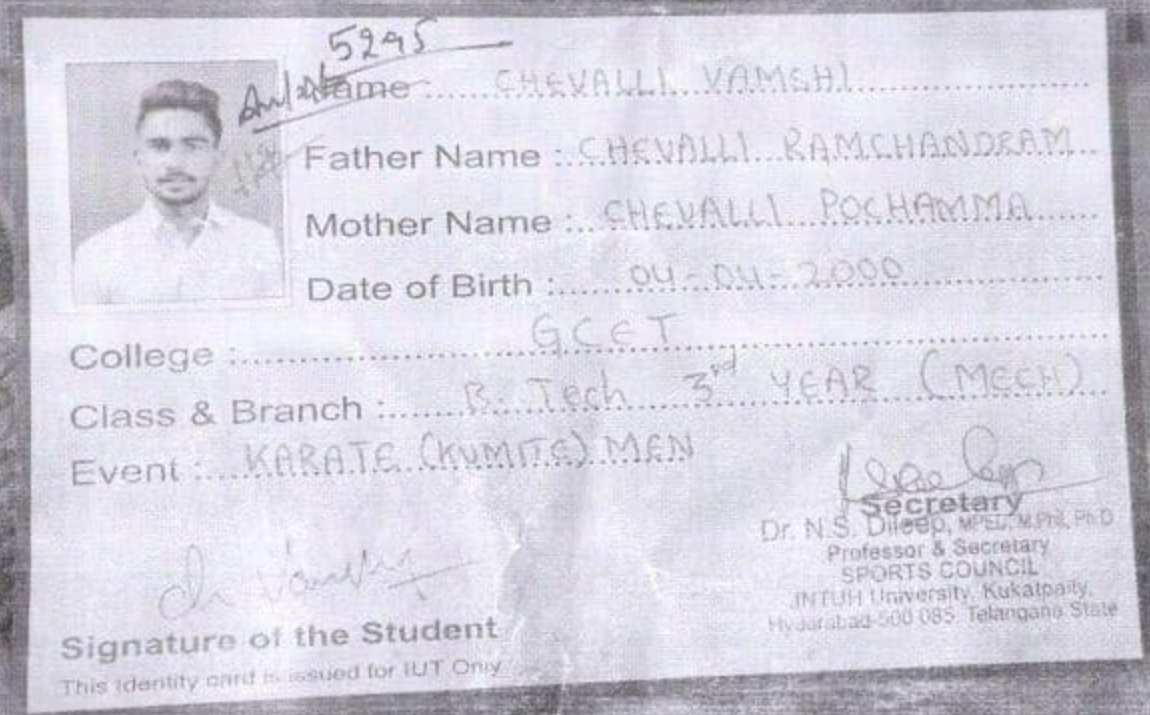 5295
Name : CHEVALLI VAMSHI
Father Name : CHEVALLI RAMCHANDRAM
Mother Name : CHEVALLI POCHAMMA
Date of Birth : 04-04-2000
College : GCET
Class & Branch : B. Tech 3rd YEAR (MECH)
Event : KARATE (KUMITE) MEN
Secretary
Dr. N.S. Dileep, MPED, M.Phil, Ph.D
Professor & Secretary
SPORTS COUNCIL
JNTUH University, Kukatpally,
Hyderabad-500 085. Telangana State
Ch Vamshi
Signature of the Student
This identity card is issued for IUT Only